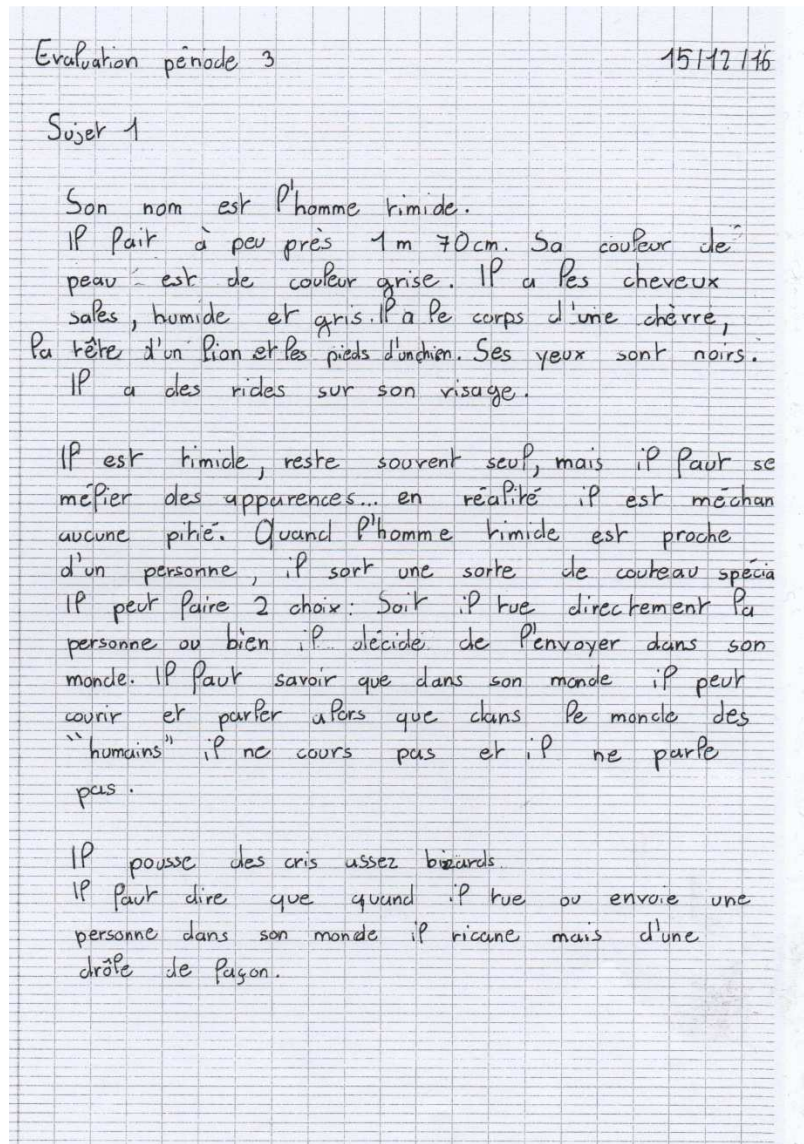 Evaluation période 3 15/12/16
Sujet 1
Son nom est l'homme timide.
Il fait à peu près 1 m 70cm. Sa couleur de
peau est de couleur grise. Il a les cheveux
sales, humide et gris. Il a le corps d'une chèvre,
la tête d'un lion et les pieds d'un chien. Ses yeux sont noirs.
Il a des rides sur son visage.
Il est timide, reste souvent seul, mais il faut se
méfier des apparences... en réalité il est méchan
aucune pitié. Quand l'homme timide est proche
d'un personne, il sort une sorte de couteau spécia
Il peut faire 2 choix: Soit il tue directement la
personne ou bien il décide de l'envoyer dans son
monde. Il faut savoir que dans son monde il peut
courir et parler alors que dans le monde des
"humains" il ne cours pas et il ne parle
pas.
Il pousse des cris assez bizards.
Il faut dire que quand il tue ou envoie une
personne dans son monde il ricane mais d'une
drôle de façon.